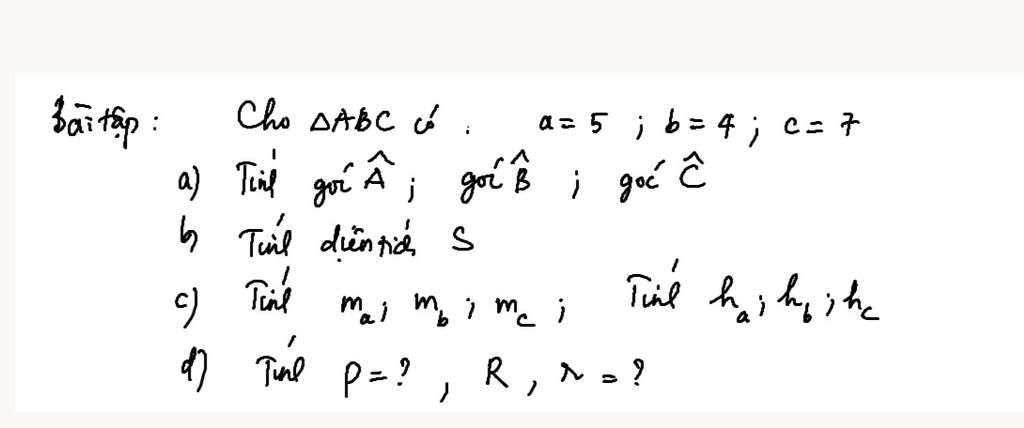 Bài tập : Cho △ABC có . a = 5 ; b = 4 ; c = 7
a) Tính góc Â ; góc B̂ ; góc Ĉ
b) Tính diện tích S
c) Tính mₐ ; m_b ; m_c ; Tính hₐ ; h_b ; h_c
d) Tính p = ? , R , r = ?